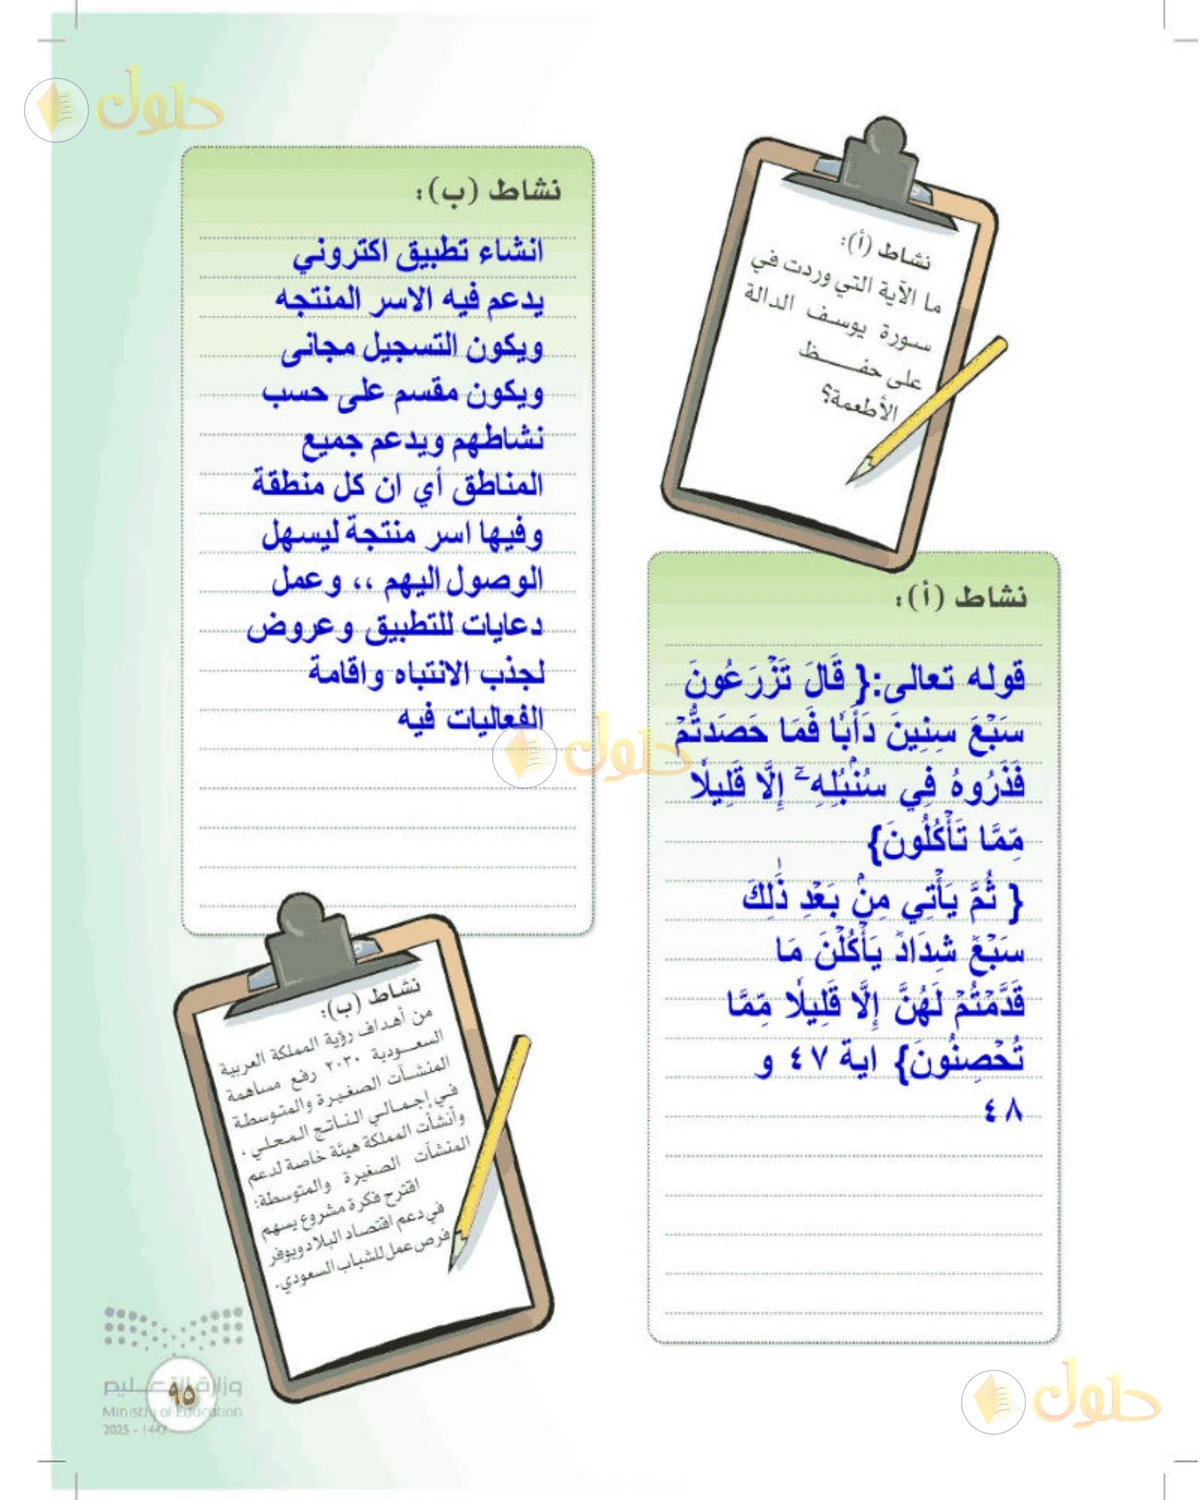 حلول
نشاط (أ):
ما الآية التي وردت في
سورة يوسف الدالة
على حفظ
الأطعمة؟
نشاط (أ):
قوله تعالى:{ قَالَ تَزْرَعُونَ
سَبْعَ سِنِينَ دَأَبًا فَمَا حَصَدتُّمْ
فَذَرُوهُ فِي سُنۢبُلِهِۦٓ إِلَّا قَلِيلًا
مِّمَّا تَأْكُلُونَ}
{ ثُمَّ يَأْتِي مِنۢ بَعْدِ ذَٰلِكَ
سَبْعٌ شِدَادٌ يَأْكُلْنَ مَا
قَدَّمْتُمْ لَهُنَّ إِلَّا قَلِيلًا مِّمَّا
تُحْصِنُونَ} اية ٤٧ و
٤٨
نشاط (ب):
انشاء تطبيق اكتروني
يدعم فيه الاسر المنتجه
ويكون التسجيل مجانى
ويكون مقسم على حسب
نشاطهم ويدعم جميع
المناطق أي ان كل منطقة
وفيها اسر منتجة ليسهل
الوصول اليهم ،، وعمل
دعايات للتطبيق وعروض
لجذب الانتباه واقامة
الفعاليات فيه
حلول
نشاط (ب):
من أهداف رؤية المملكة العربية
السعودية ٢٠٣٠ رفع مساهمة
المنشآت الصغيرة والمتوسطة
في إجمالي الناتج المحلي ،
وأنشأت المملكة هيئة خاصة لدعم
المنشآت الصغيرة والمتوسطة:
اقترح فكرة مشروع يسهم
في دعم اقتصاد البلاد ويوفر
فرص عمل للشباب السعودي.
وزارة التعليم
٩٥
Ministry of Education
2025 - 1447
حلول